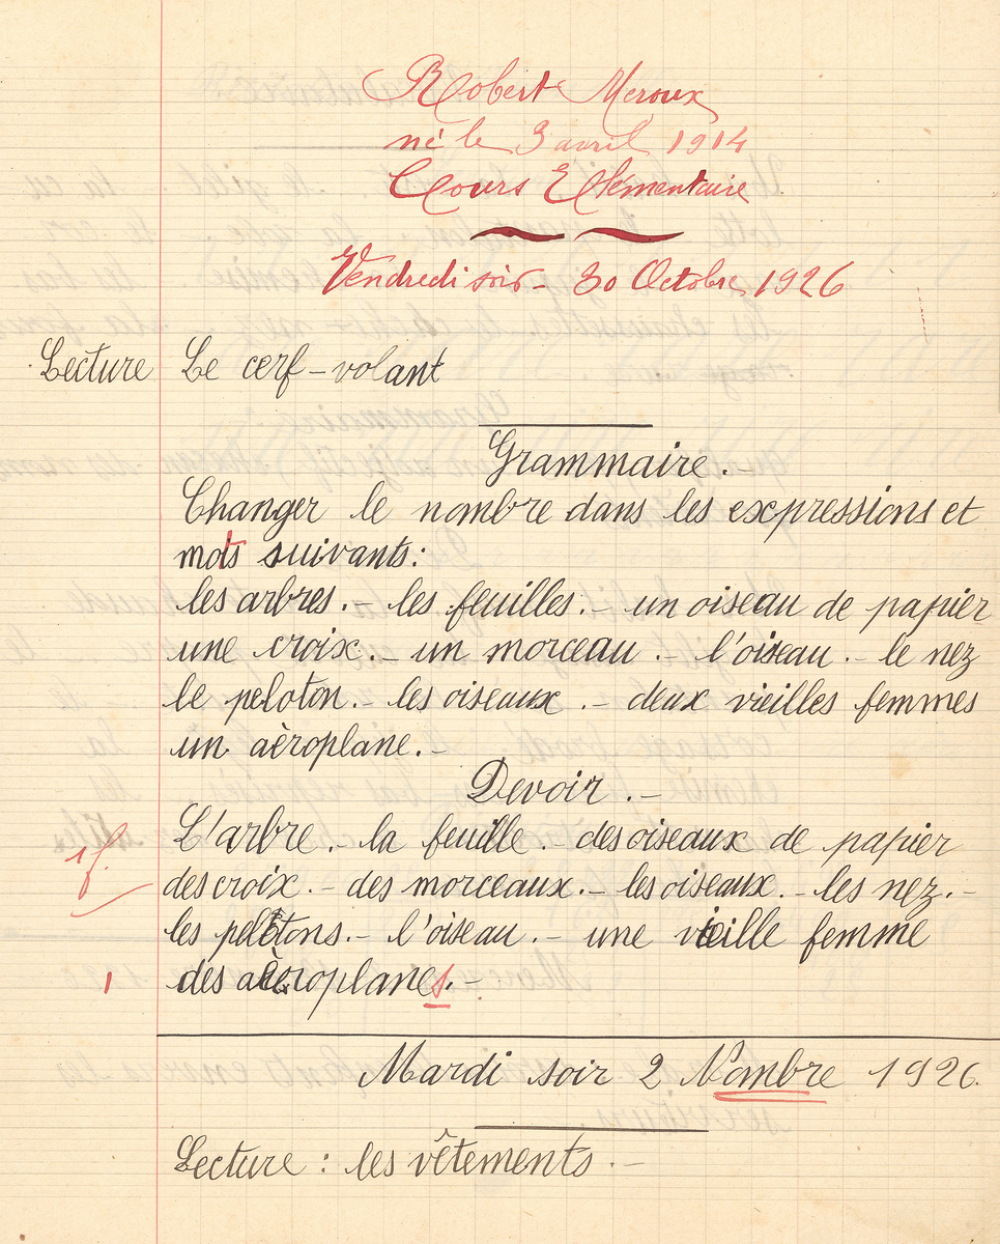 Robert Meroux
né le 3 avril 1914
Cours Elémentaire
Vendredi soir - 30 Octobre 1926
Lecture Le cerf-volant
Grammaire.-
Changer le nombre dans les expressions et
mots suivants:
les arbres.- les feuilles.- un oiseau de papier
une croix.- un morceau.- l'oiseau.- le nez
le peloton.- les oiseaux.- deux vieilles femmes
un aèroplane.-
Devoir.-
L'arbre.- la feuille.- des oiseaux de papier
des croix.- des morceaux.- les oiseaux.- les nez.-
les pelotons.- l'oiseau.- une vieille femme
1 des aèroplanes.-
Mardi soir 2 Nombre 1926.
Lecture: les vêtements.-